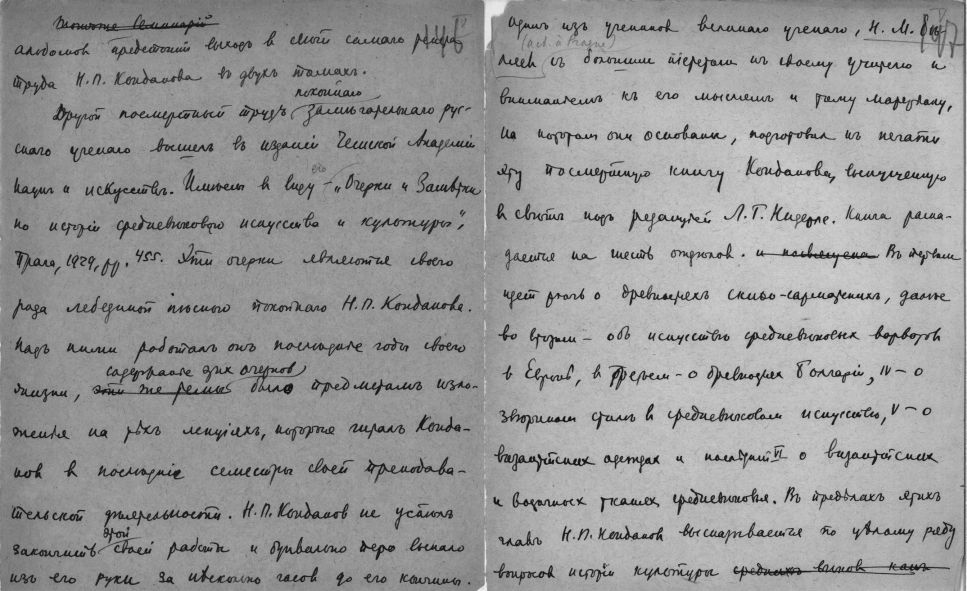 альбомов предстоит выход в свет самаго
труда Н.П. Кондакова в двух томах.
покойнаго
Другой посмертный труд замечательнаго рус-
скаго ученаго вышел в издании Чешской Академии
наук и искусств. Имеем в виду его – "Очерки и Заметки
по истории средневековаго искусства и культуры",
Прага, 1929, pp. 455. Эти очерки являются своего
рода лебединой песнью покойнаго Н.П. Кондакова.
Над ними работал он последние годы своего
содержание этих очерков
жизни, эти же темы было предметам изло-
жения на тех лекциях, которые читал Конда-
ков в последние семестры своей преподава-
тельской деятельности. Н.П. Кондаков не успел
этой
закончить своей работы и буквально перо выпало
из его руки за несколько часов до его кончины.
один из учеников великаго ученаго, Н. М. Бе-
(act. à Prague)
ляев с большим пиететом к своему учителю и
вниманием к его мыслям и тому материалу,
на котором они основаны, подготовил к печати
эту посмертную книгу Кондакова, выпущенную
в свет под редакцией Л.Г. Нидерле. Книга распа-
дается на шесть отделов. и посвящена В первом
идет речь о древностях скифо-сарматских, далее
во втором – об искусстве средневековых варваров
в Европе, в третьем – о древностях Болгарии, IV – о
зверином стиле в средневековом искусстве, V – о
византийских одеждах и последний VI о византийских
и восточных тканях средневековья. В пределах этих
глав Н.П. Кондаков высказывается по целому ряду
вопросов истории культуры средних веков как